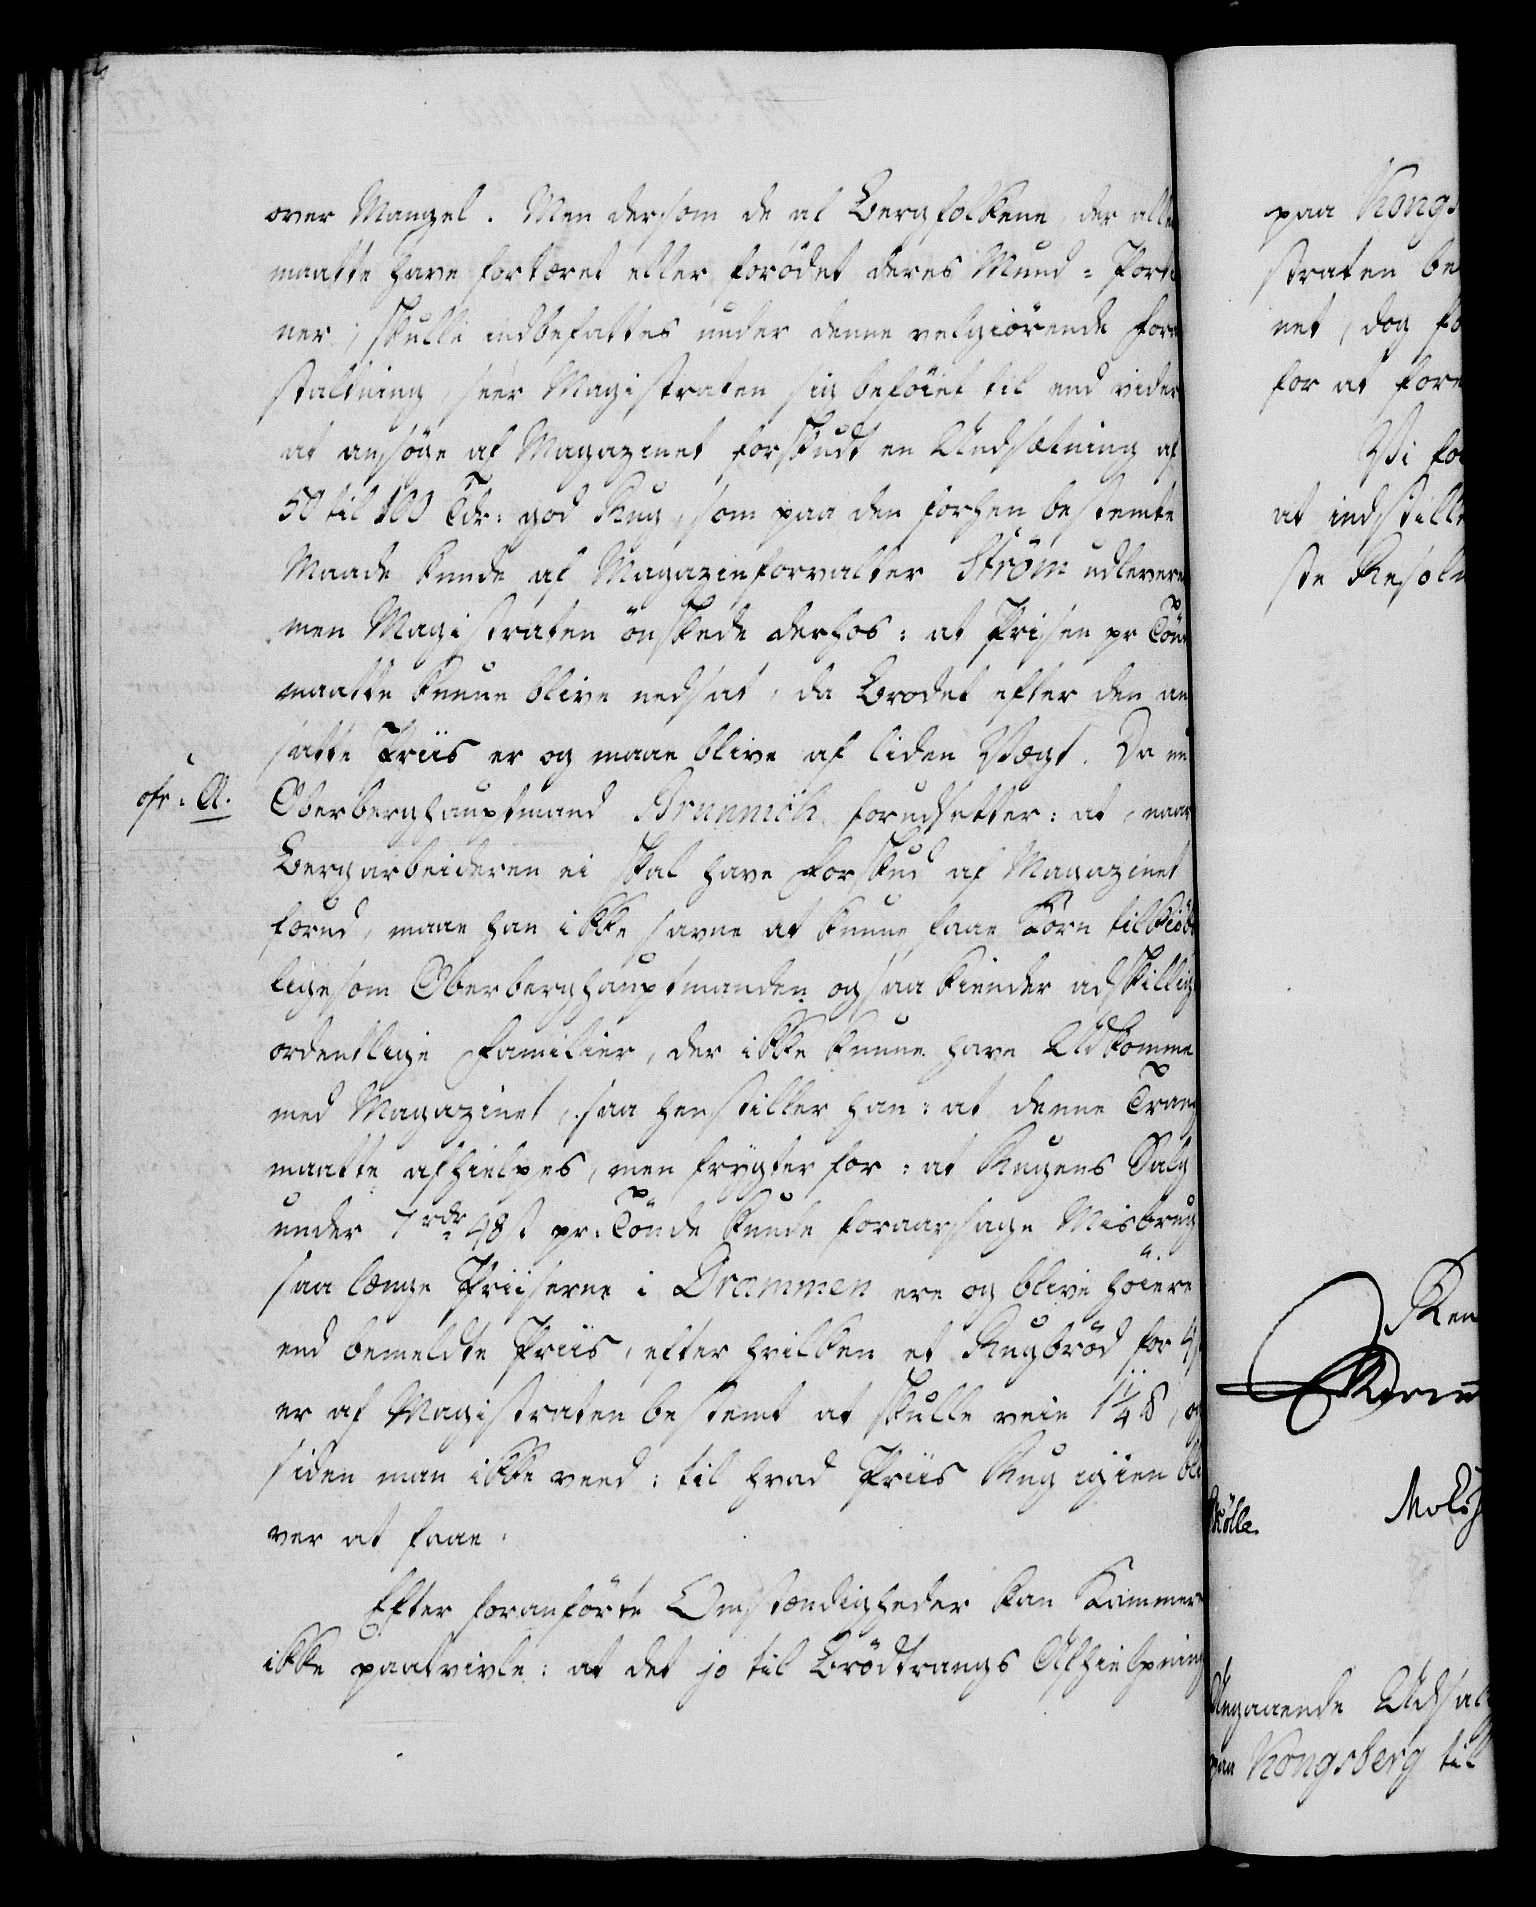 over Mangel. Men dersom de af Bergfolkene, der alle
maatte have fortæret eller forödet deres Mund-Porti
ner, skulle indbefattes under denne velgiörende For
staltning seer Magistraten sig beföiet til end vider
at ansöge af Magazinet forskudt en Undsætning af
50 til 100 Tdr: god Rug, som paa den forhen bestemte
Maade kunde af Magazinforvalter Ström udlevere
men Magistraten önskede derhos: at Prisen pr Tön
maatte kunne blive nedsat, da Brodet efter den an
satte Priis er og maae blive af liden Vægt. Da nu
cfr: A.
Oberberghauptmand Brünnich forudsetter: at, naar
Bergarbeideren ei skal have Forskud af Magazinet
forud, maae han ikke savne at kunne faae Korn tilkiöb
ligesom Oberberghauptmanden ogsaa kiender adskillig
ordentlige Familier, der ikke kunne have Udkomme
med Magazinet, saa henstiller han: at denne Trang
maatte afhielpes, men frygter for: at Rugens Salg
under 7 rdr 48 s pr: Tönde kunde foraarsage Misbrug
saa længe Priiserne i Drammen ere og blive höiere
end bemeldte Priis, efter hvilken et Rugbröd for 4
er af Magistraten bestemt at skulle veie 1 1/4 ℔, og
siden man ikke veed: til hvad Priis Rug igien bli
ver at faae.
Efter foranförte Omstændigheder kan Kammer
ikke paatvivle: at det jo til Brödtrangs Afhielpning
paa Kongs
straten be
net, dog fo
for at fore
Vi for
at indstille
ste Resolu
Ren
Mols
Angaaende Udsal
paa Kongsberg til